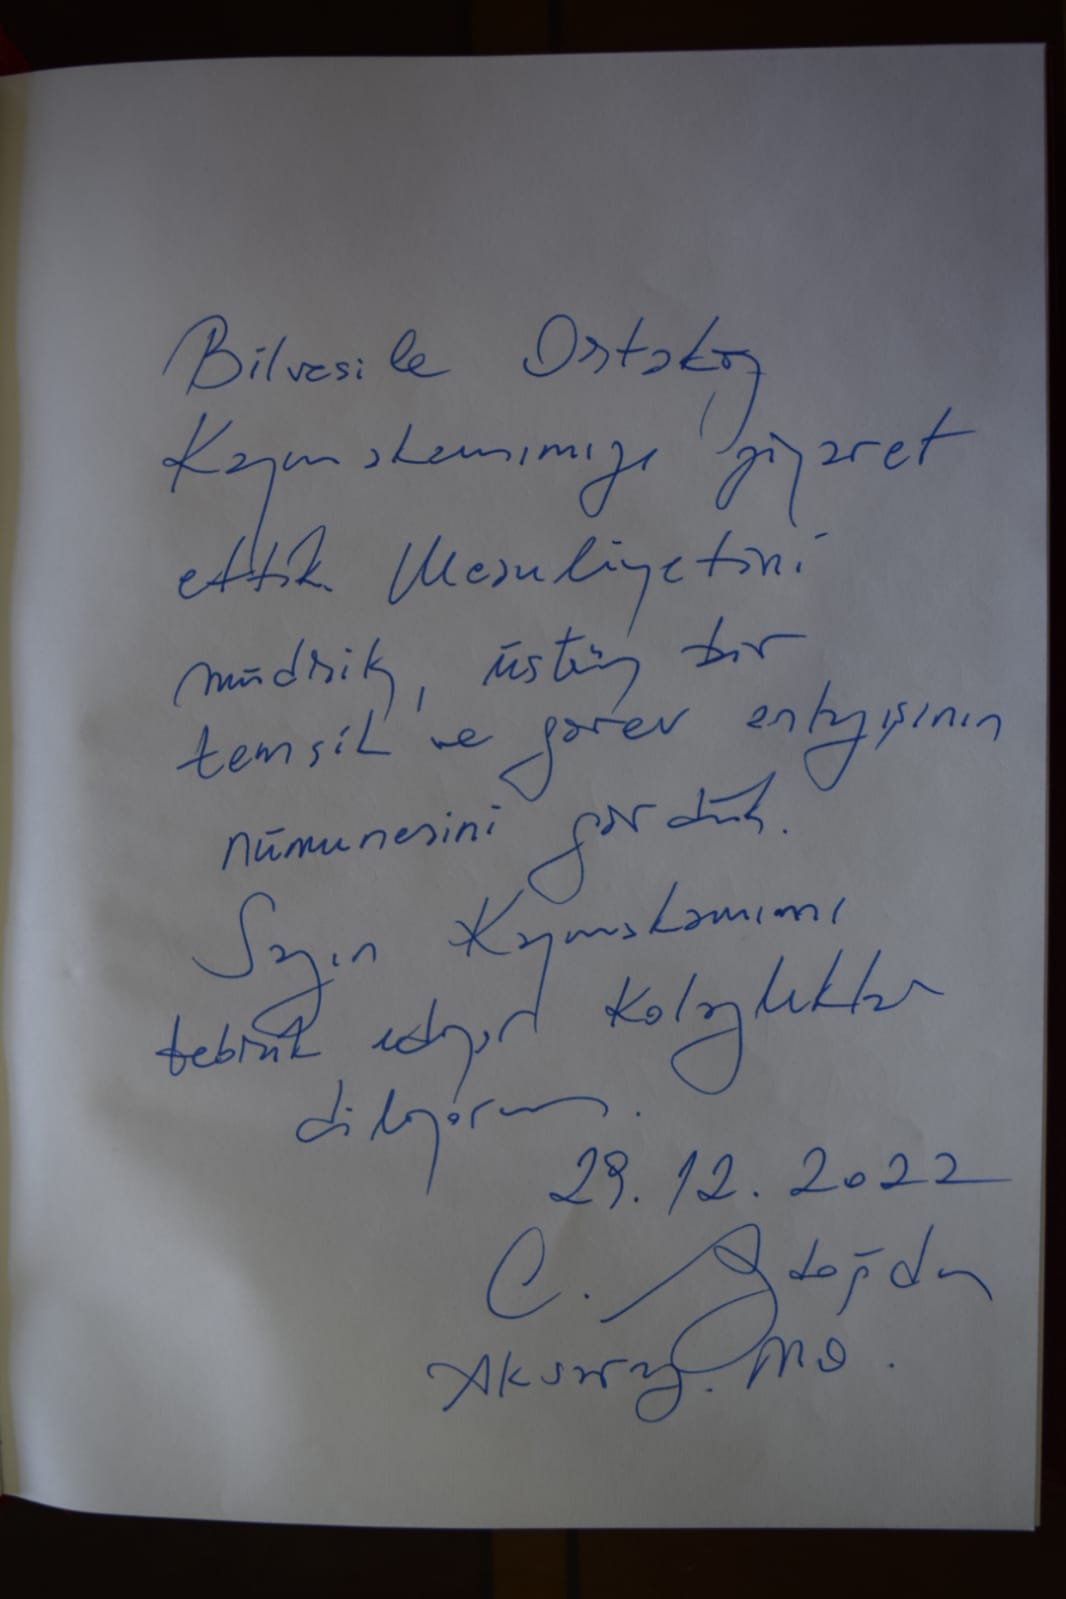 Bilvesile Ortaköy
Kaymakamımızı ziyaret
ettik. Mesuliyetini
müdrik, üstün bir
temsil ve görev anlayışının
nümunesini gördük.
Sayın Kaymakamımı
tebrik ediyor kolaylıklar
diliyorum.
29.12.2022
C.
Aksaray.